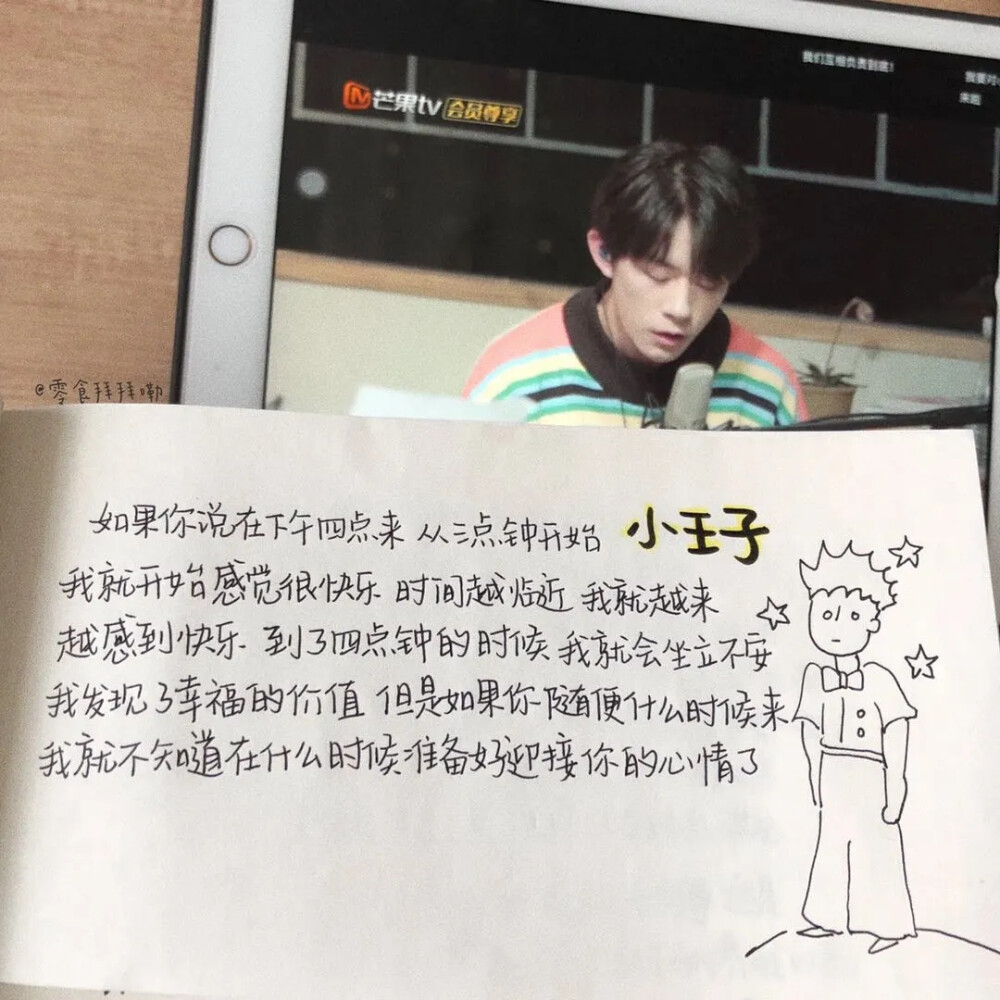 我们互相负责到底！
我要对
来跑
芒果tv 会员尊享
@零食拜拜嘞
小王子
如果你说在下午四点来 从三点钟开始
我就开始感觉很快乐 时间越临近 我就越来
越感到快乐 到了四点钟的时候 我就会坐立不安
我发现了幸福的价值 但是如果你随便什么时候来
我就不知道在什么时候准备好迎接你的心情了